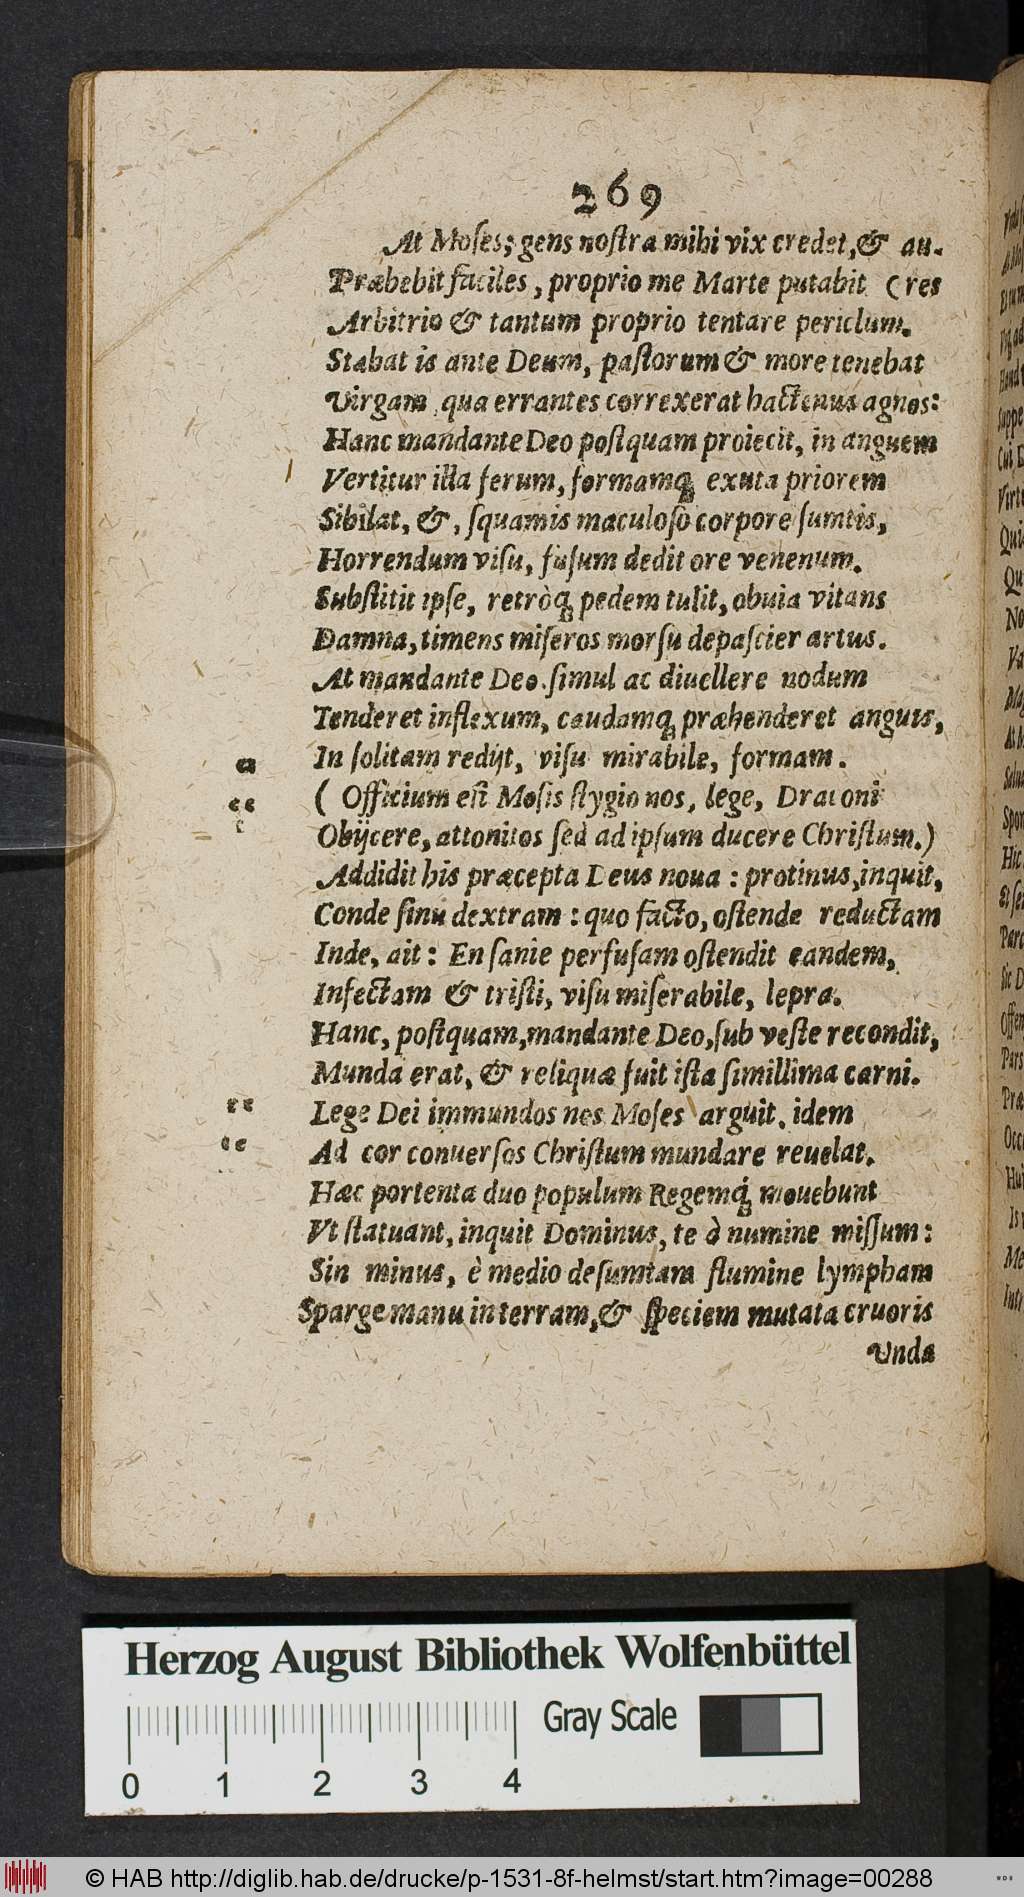 269
At Moſes; gens noſtra mihi vix credet, & au-
Præbebit faciles, proprio me Marte putabit (res
Arbitrio & tantum proprio tentare periclum.
Stabat is ante Deum, paſtorum & more tenebat
Virgam, qua errantes correxerat hactenus agnos:
Hanc mandante Deo poſtquam proiecit, in anguem
Vertitur illa ferum, formamq́ exuta priorem
Sibilat, &, ſquamis maculoſo corpore ſumtis,
Horrendum viſu, fuſum dedit ore venenum.
Subſtitit ipſe, retròq́ pedem tulit, obuia vitans
Damna, timens miſeros morſu depaſcier artus.
At mandante Deo ſimul ac diuellere nodum
Tenderet inflexum, caudamq́ præhenderet anguis,
In ſolitam redijt, viſu mirabile, formam.
( Officium eſt Moſis ſtygio nos, lege, Draconi
Obijcere, attonitos ſed ad ipſum ducere Chriſtum.)
Addidit his præcepta Deus noua: protinus, inquit,
Conde ſinu dextram: quo facto, oſtende reductam
Inde, ait: En ſanie perfuſam oſtendit eandem,
Infectam & triſti, viſu miſerabile, lepra.
Hanc, poſtquam, mandante Deo, ſub veſte recondit,
Munda erat, & reliquæ fuit iſta ſimillima carni.
Lege Dei immundos nos Moſes arguit, idem
Ad cor conuerſos Chriſtum mundare reuelat.
Hæc portenta duo populum Regemq́ mouebunt
Vt ſtatuant, inquit Dominus, te à numine miſſum:
Sin minus, è medio deſumtam flumine lympham
Sparge manu in terram, & ſpeciem mutata cruoris
Unda
Herzog August Bibliothek Wolfenbüttel
Gray Scale
0 1 2 3 4
© HAB http://diglib.hab.de/drucke/p-1531-8f-helmst/start.htm?image=00288